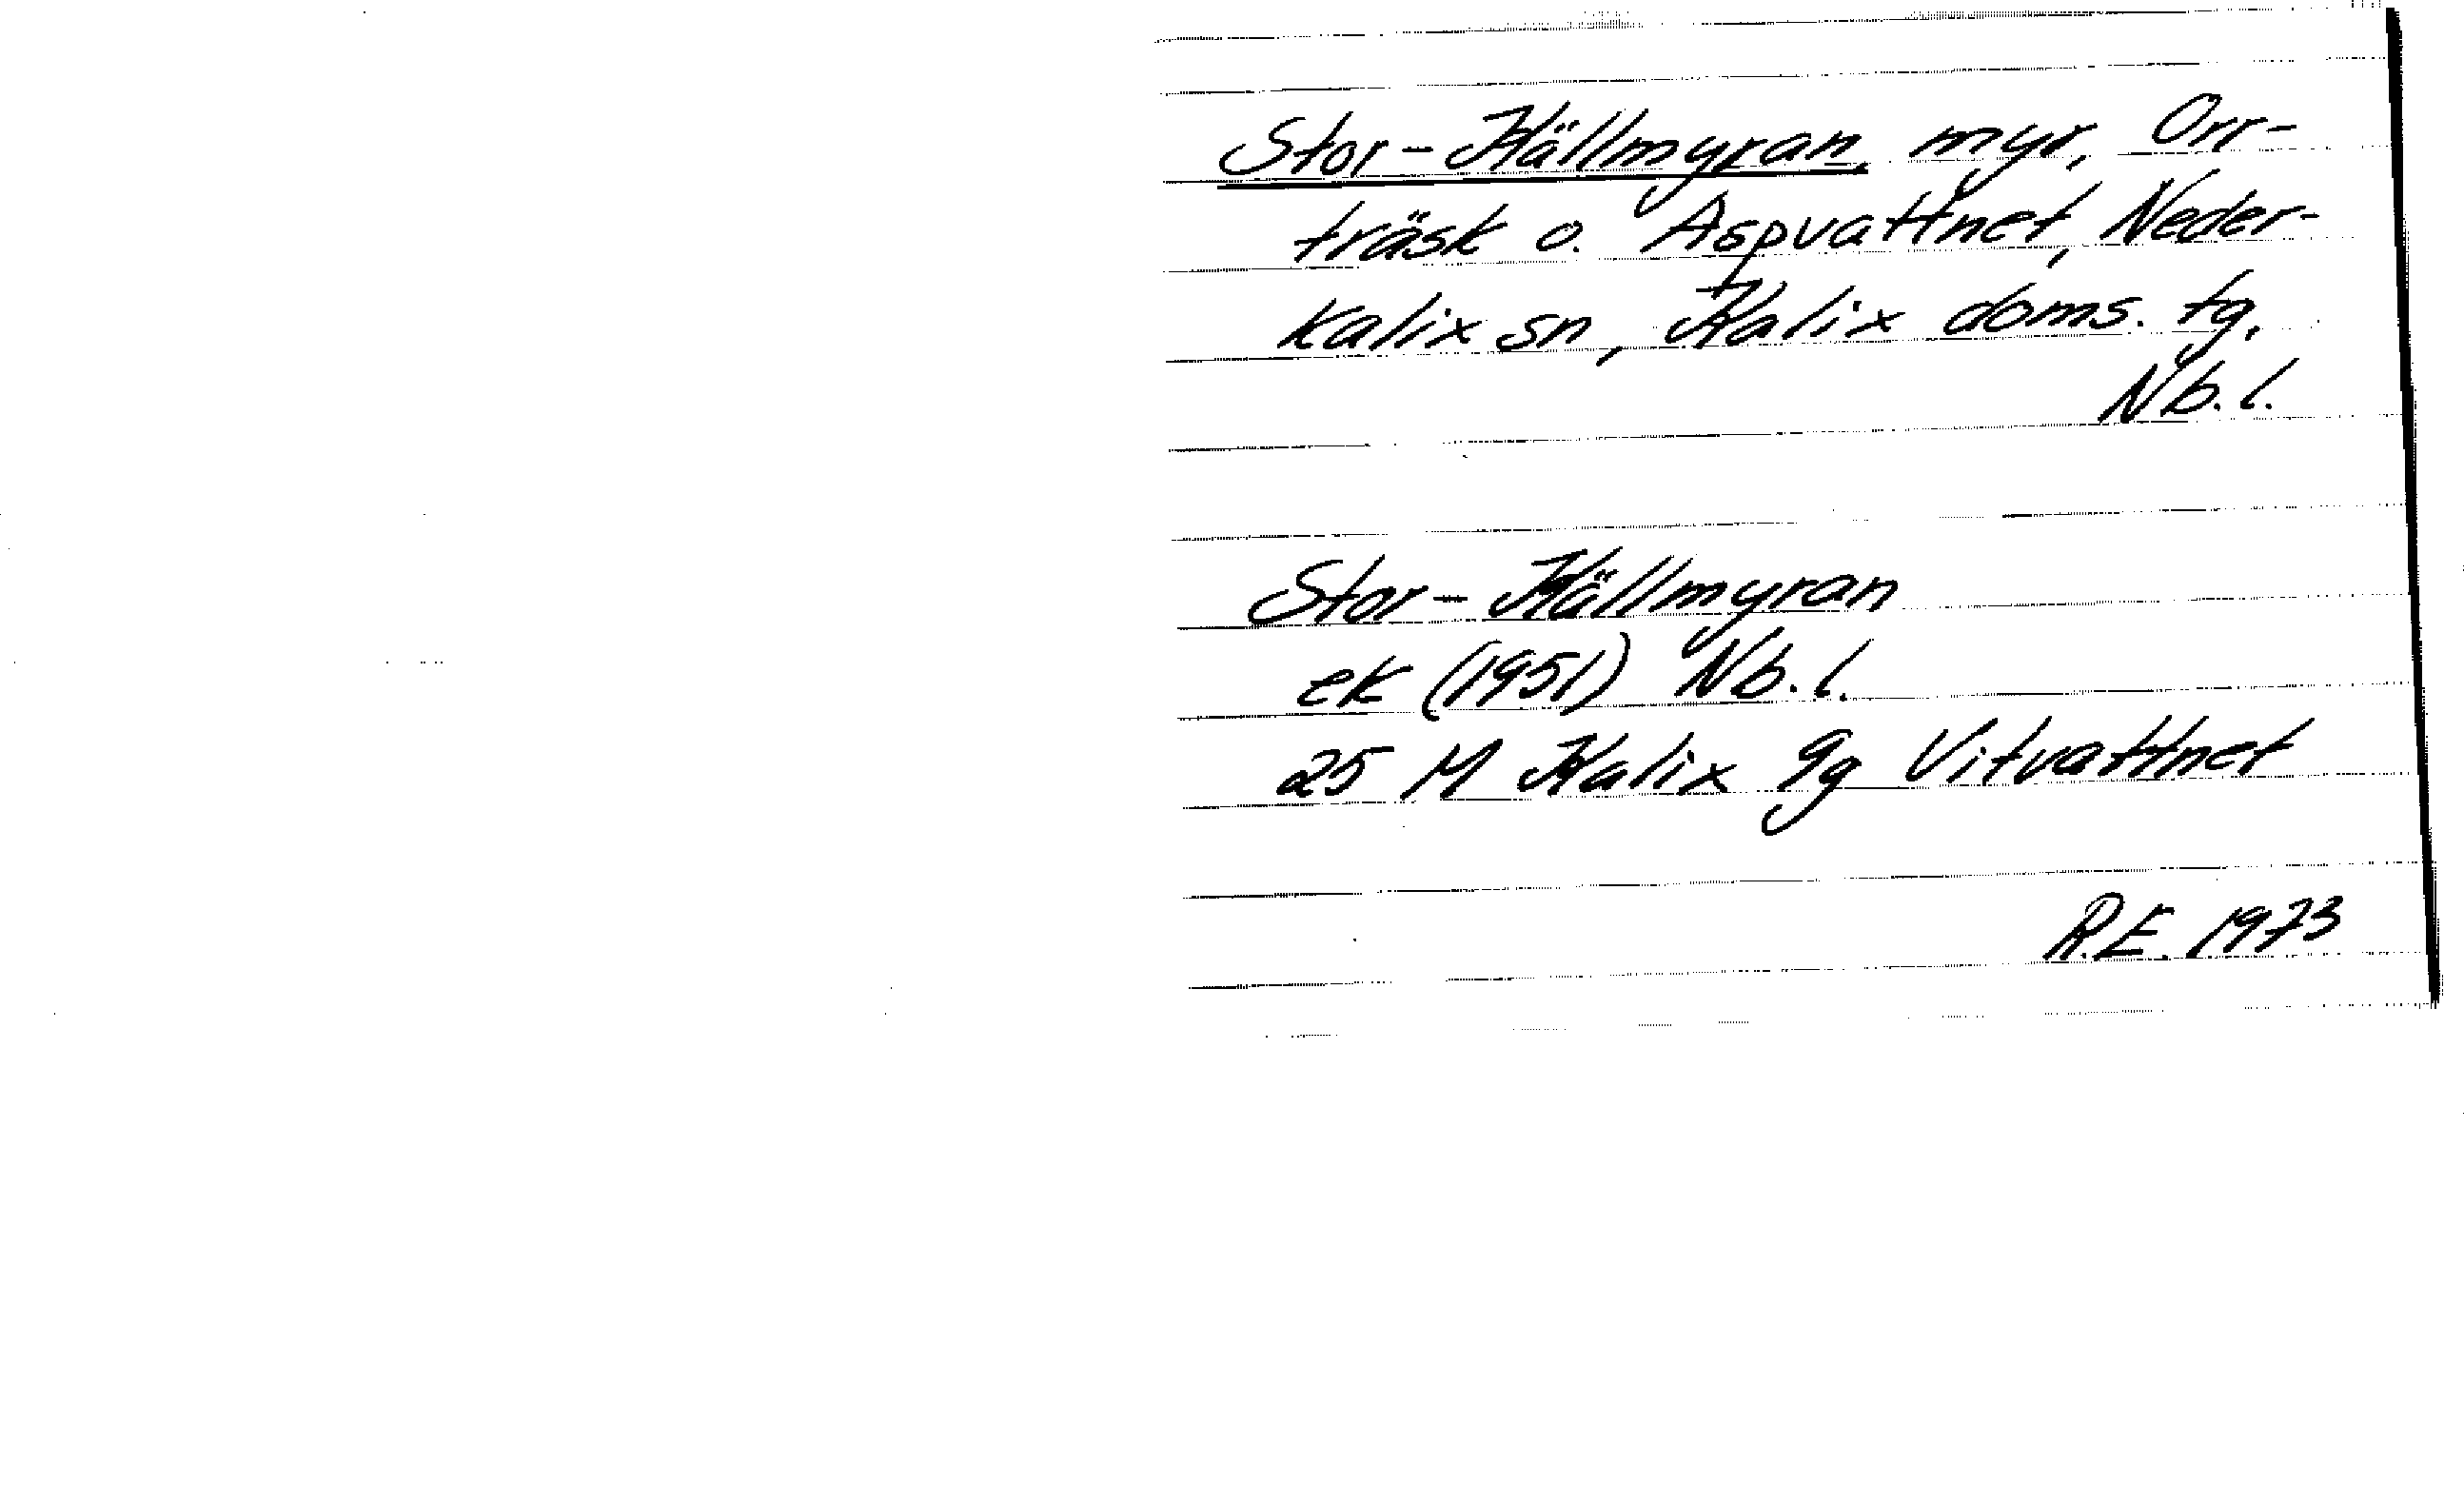 Stor-Källmyran, myr, Orr-
träsk o. Aspvattnet, Neder-
kalix sn, Kalix doms. tg,
Nb.l.
Stor-Källmyran
ek (1951) Nb.l.
25 M Kalix 9g Vitvattnet
R.E. 1973